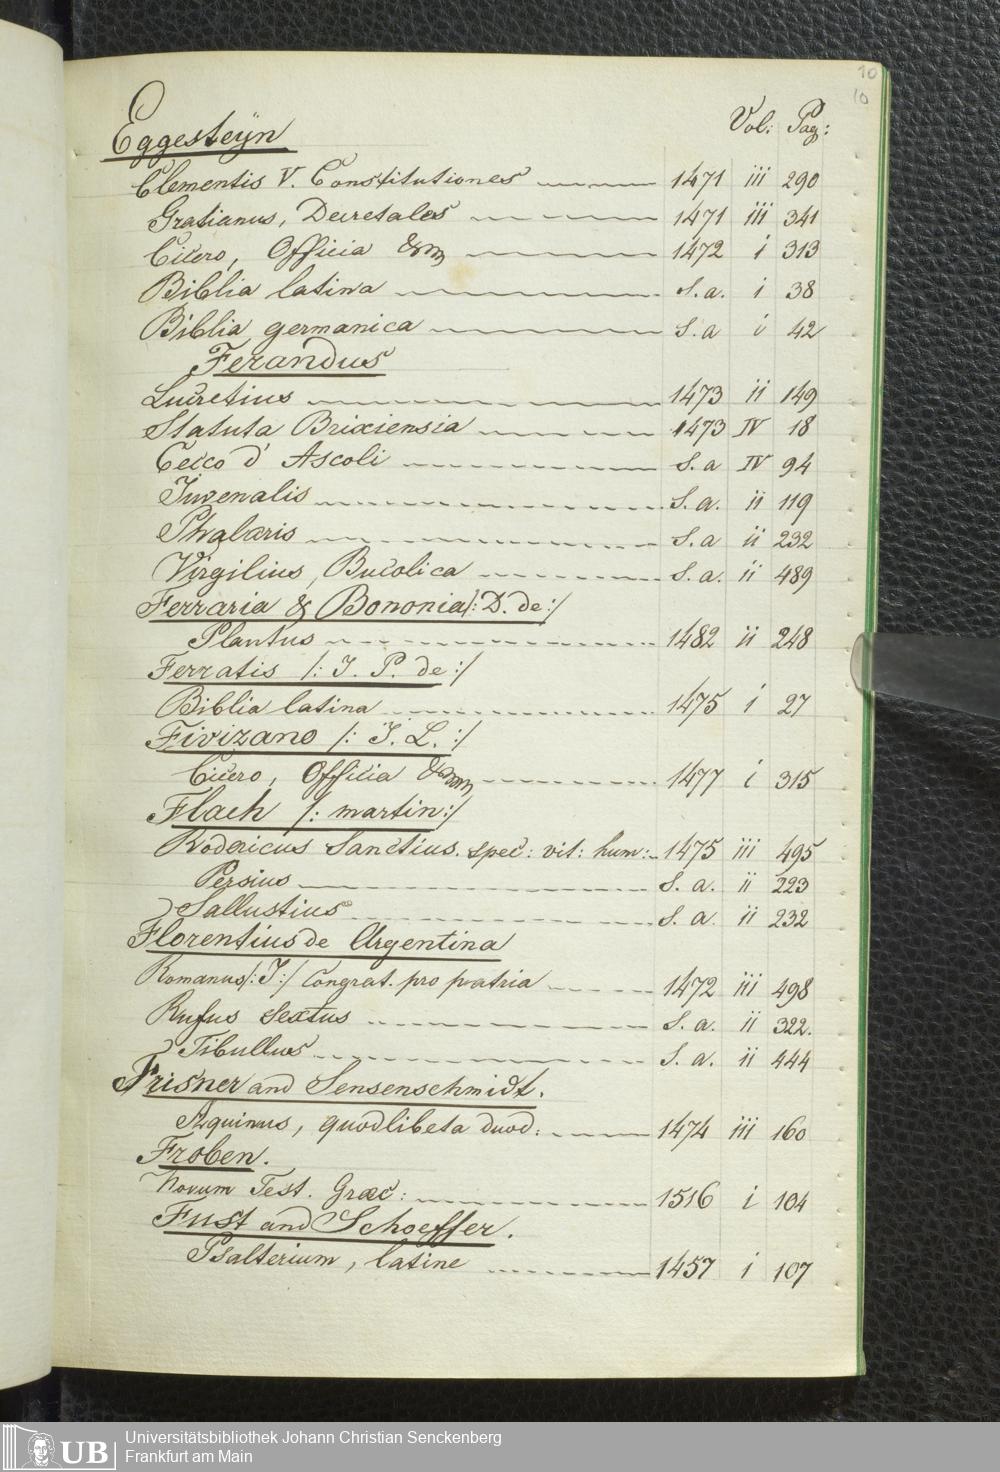 10
10
Vol: Pag:
Eggesteÿn
Clementis V. Constitutiones 1471 iii 290
Gratianus, Decretales 1471 iii 341
Cicero, Officia & 1472 i 313
Biblia latina S.a. i 38
Biblia germanica S.a i 42
Ferandus
Lucretius 1473 ii 149
Statuta Brixiensia 1473 IV 18
Cecco d'Ascoli S.a IV 94
Juvenalis S.a. ii 119
Phalaris S.a ii 232
Virgilius, Bucolica S.a. ii 489
Ferraria & Bononia /: D. de :/
Plautus 1482 ii 248
Ferratis /: J. P. de :/
Biblia latina 1475 i 27
Fivizano /: J. L. :/
Cicero, Officia & 1477 i 315
Flach /: martin :/
Rodericus Sanctius. spec: vit: hum: 1475 iii 495
Persius S.a. ii 223
Sallustius S.a. ii 232
Florentius de Argentina
Romanus /: J :/ Congrat. pro patria 1472 iii 498
Rufus Sextus S.a. ii 322.
Tibullus S.a. ii 444
Frisner and Sensenschmidt.
Aquinus, quodlibeta duod: 1474 iii 160
Froben.
Novum Test. Graec: 1516 i 104
Fust and Schoeffer.
Psalterium, latine 1457 i 107
UB Universitätsbibliothek Johann Christian Senckenberg
Frankfurt am Main